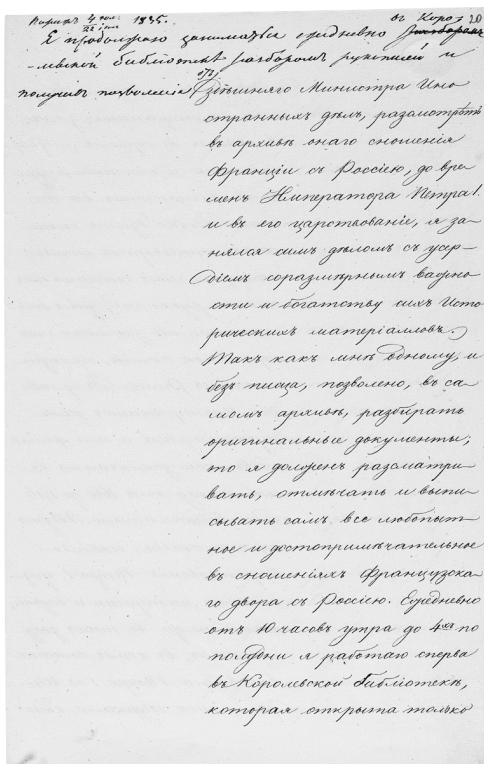 Париж 4 июл. 1835. въ Коро- 20
22 іюн
Я продолжаю заниматься ежедневно
-левской библіотекѣ разборомъ рукописей и
получивъ позволеніе отъ
здѣшняго Министра Ино
странныхъ дѣлъ, разсмотрѣть
въ архивѣ онаго сношенія
Франціи съ Россіею, до вре
менъ Императора Петра I.
и въ его царствованіе, я за
нялся симъ дѣломъ съ усер-
діемъ соразмѣрнымъ важно
сти и богатству сихъ Исто
рическихъ матеріалловъ.
Такъ какъ мнѣ одному, и
безъ писца, позволено, въ са
момъ архивѣ, разбирать
оригинальные документы,
то я долженъ разсматри
вать, отмѣчать и выпи
сывать самъ все любопыт
ное и достопримѣчательное
въ сношеніяхъ Французска
го двора съ Россіею. Ежедневно
отъ 10 часовъ утра до 4хъ по
полудни я работаю сперва
въ Королевской Библіотекѣ,
которая открыта только